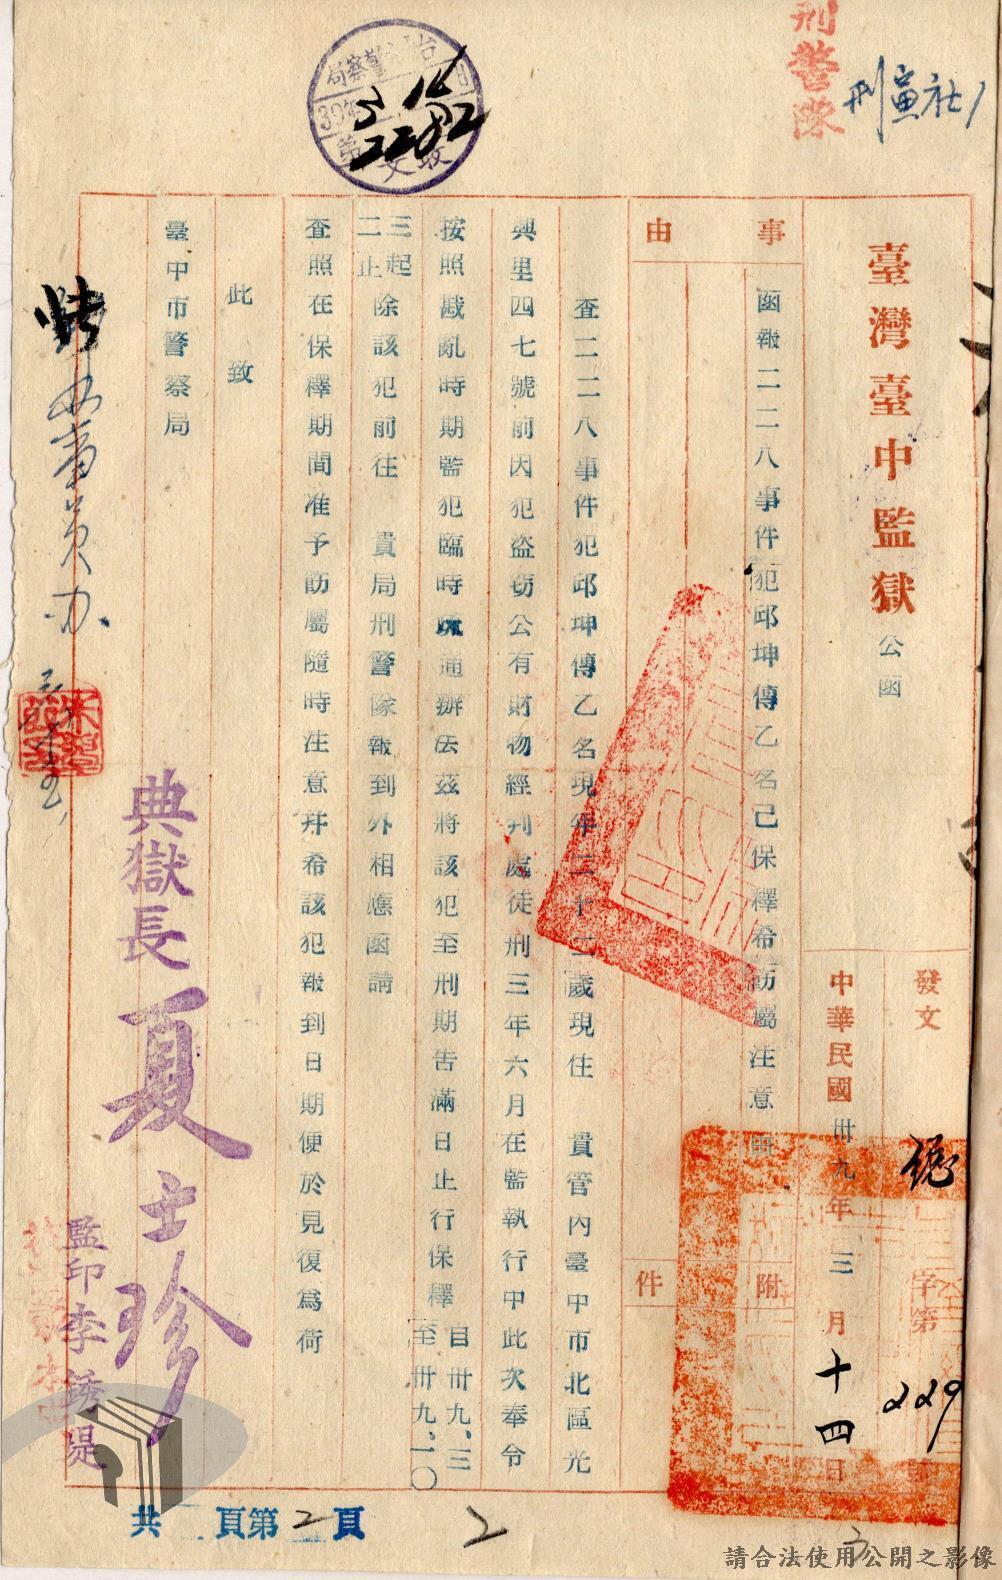 刑警隊
刑
社
臺灣臺中監獄公函
發文
字第229號
中華民國卅九年三月十四日
事由
附件
函報二二八事件犯邱坤傳乙名已保釋希飭屬注意由
查二二八事件犯邱坤傳乙名現年三十二歲現住 貴管內臺中市北區光
興里四七號前因犯盜竊公有財物經判處徒刑三年六月在監執行中此次奉令
按照戡亂時期監犯臨時疏通辦法茲將該犯至刑期告滿日止行保釋自卅九、三
至卅九、一〇
三起
二止除該犯前往 貴局刑警隊報到外相應函請
查照在保釋期間准予飭屬隨時注意幷希該犯報到日期便於見復為荷
此致
臺中市警察局
典獄長夏士珍
監印李銹堤
共 頁第2頁
2
請合法使用公開之影像